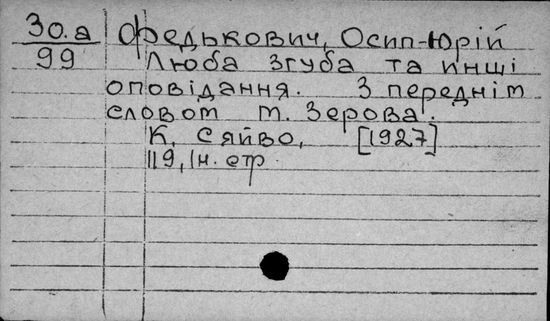 30.а
99
Федькович, Осип-Юрій
Люба згуба та инші
оповідання. З переднім
словом М. Зерова.
К, Сяйво, [1927]
119, 1н. стр.